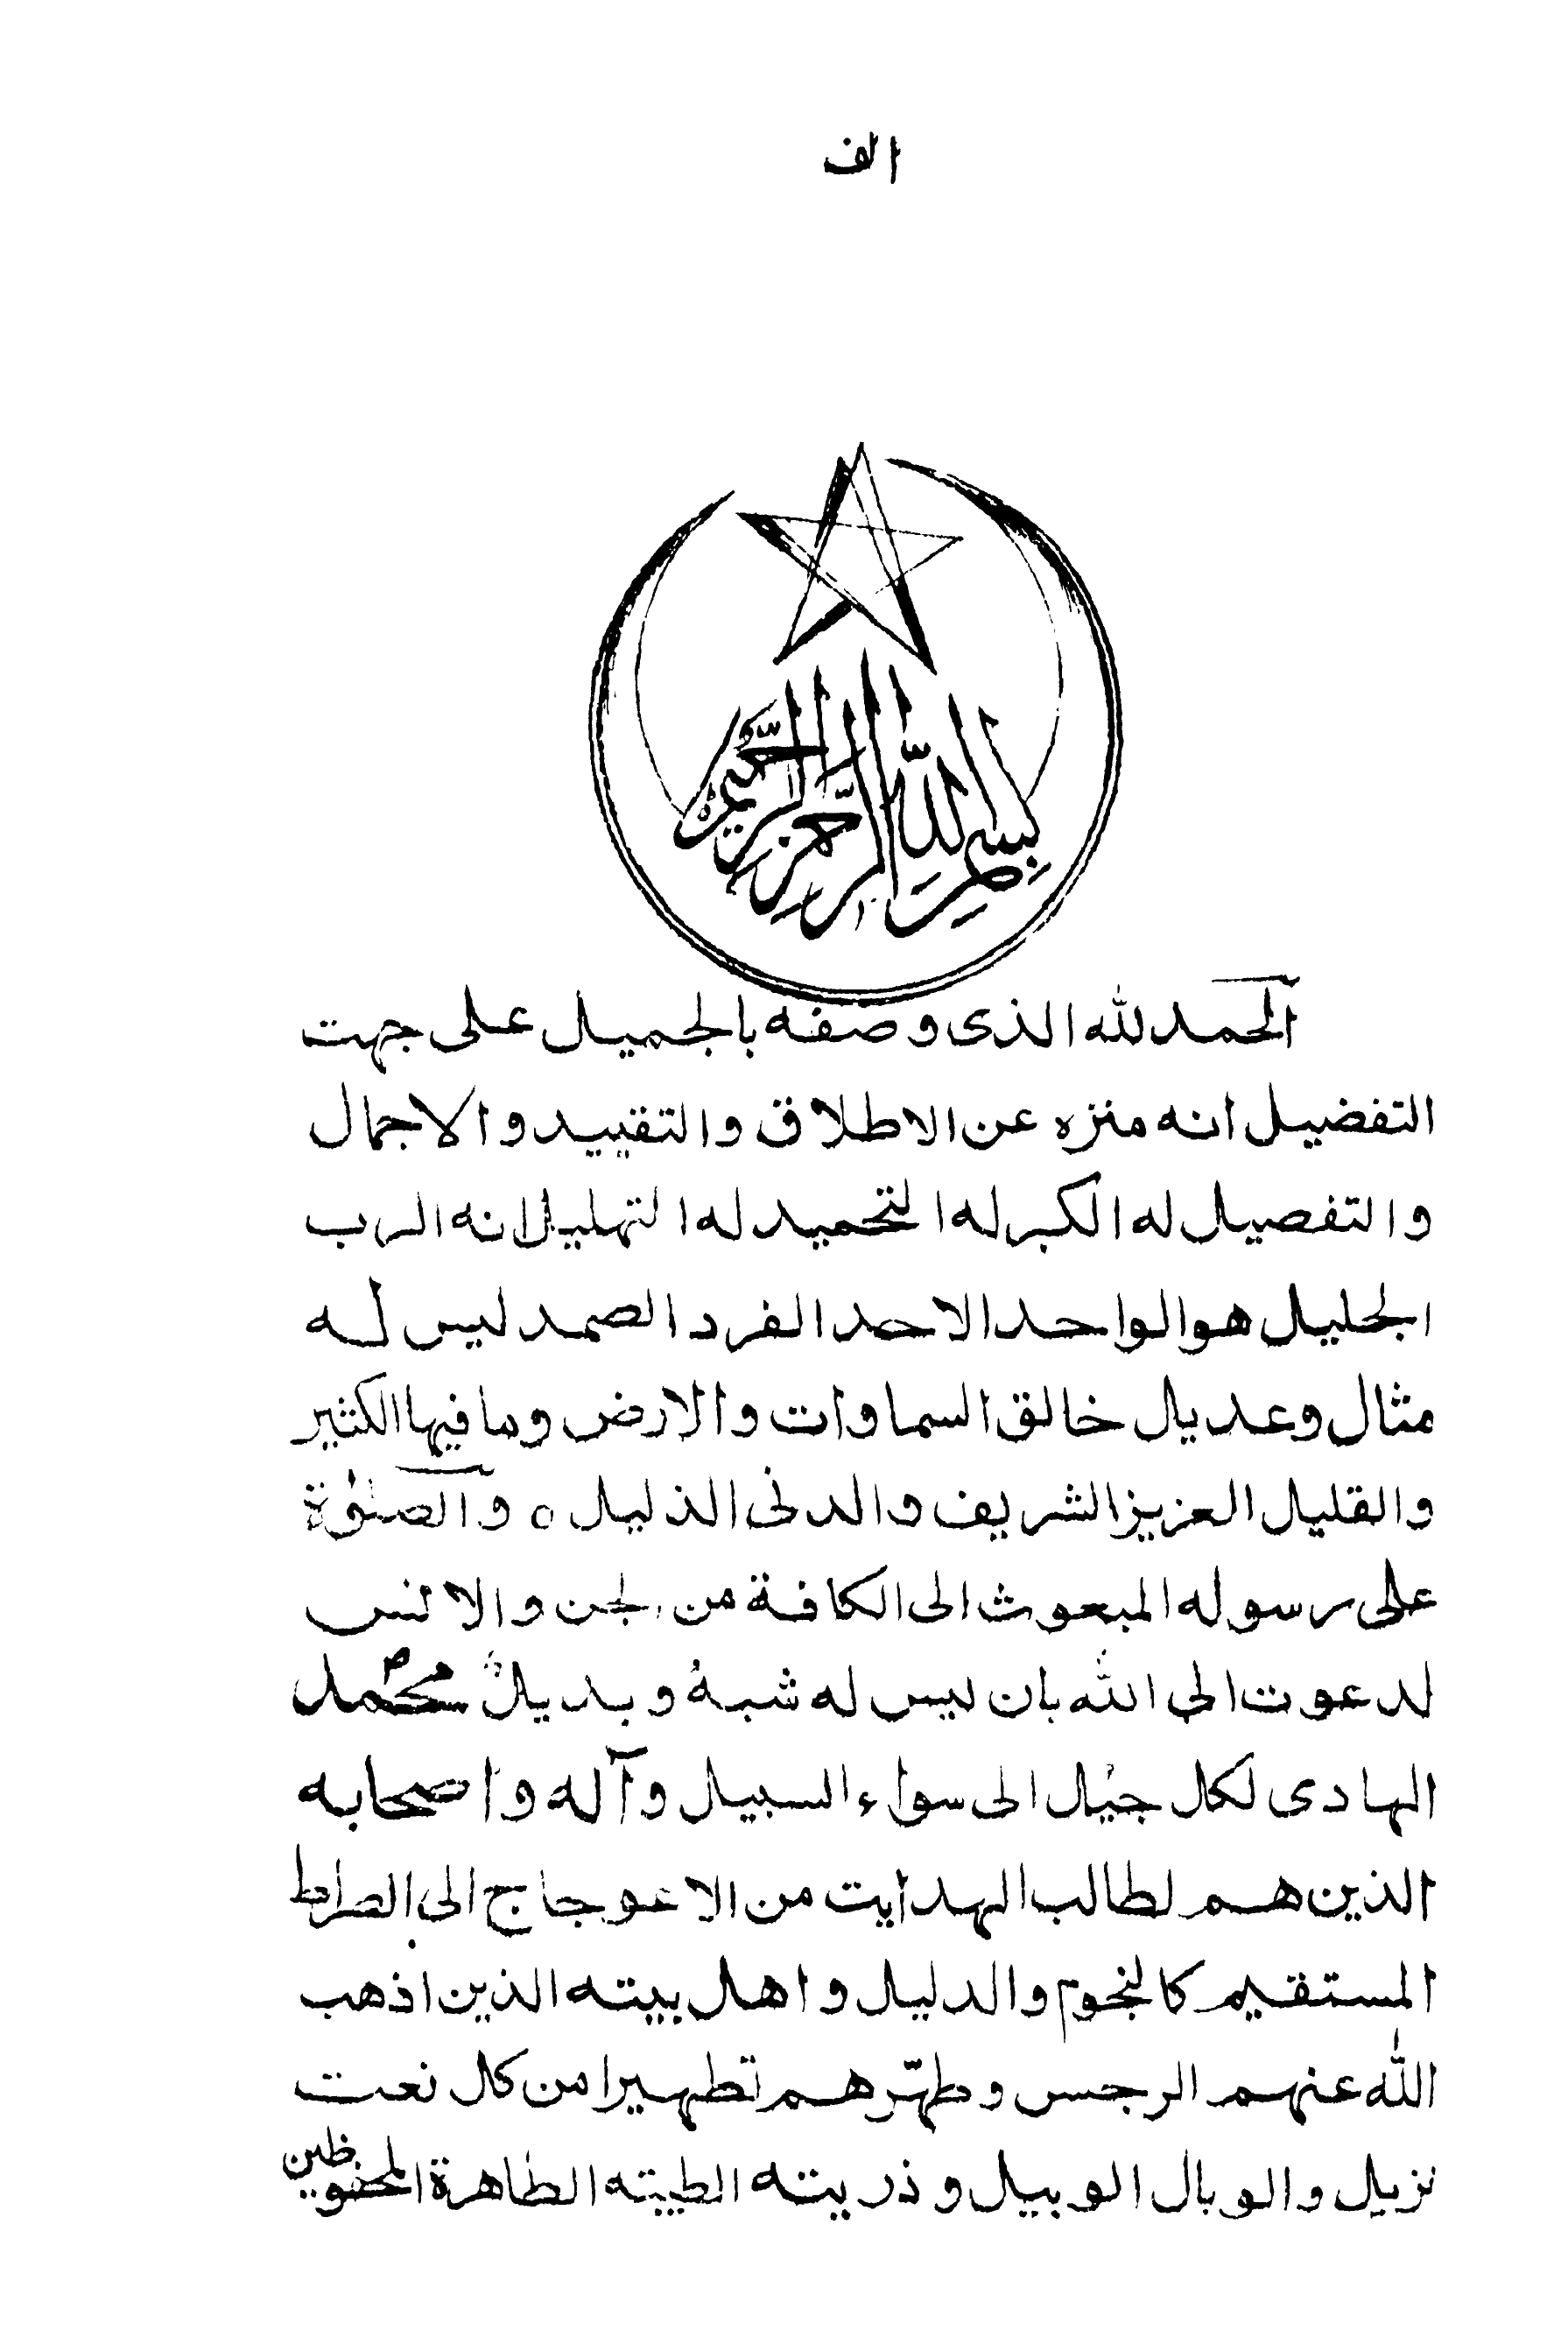 الف
بِسْمِ اللّٰهِ الرَّحْمٰنِ الرَّحِيْمِ
اَلحمد للّٰه الذى وصفه بالجميل على جهت
التفضيل انه منزه عن الاطلاق والتقييد والاجمال
والتفصيل له الكبر له التحميد له التهليل انه الرب
الجليل هو الواحد الاحد الفرد الصمد ليس له
مثال وعديل خالق السماوات والارض وما فيها الكثير
والقليل العزيز الشريف والدنى الذليل ٥ والصلوٰة
على رسوله المبعوث الى الكافة من الجن والانس
لدعوت الى اللّٰه بان ليس له شبهُ وبديلٌ محمّد ؐ
الهادى لكل جيل الى سواء السبيل وآله واصحابه
الذين هم لطالب الهدايت من الاعوجاج الى الصراط
المستقيم كالنجوم والدليل واهل بيته الذين اذهب
اللّٰه عنهم الرجس وطهّرهم تطهيرا من كل نعت
نزيل والوبال الوبيل وذريته الطيبته الطاهرة المحفوظين